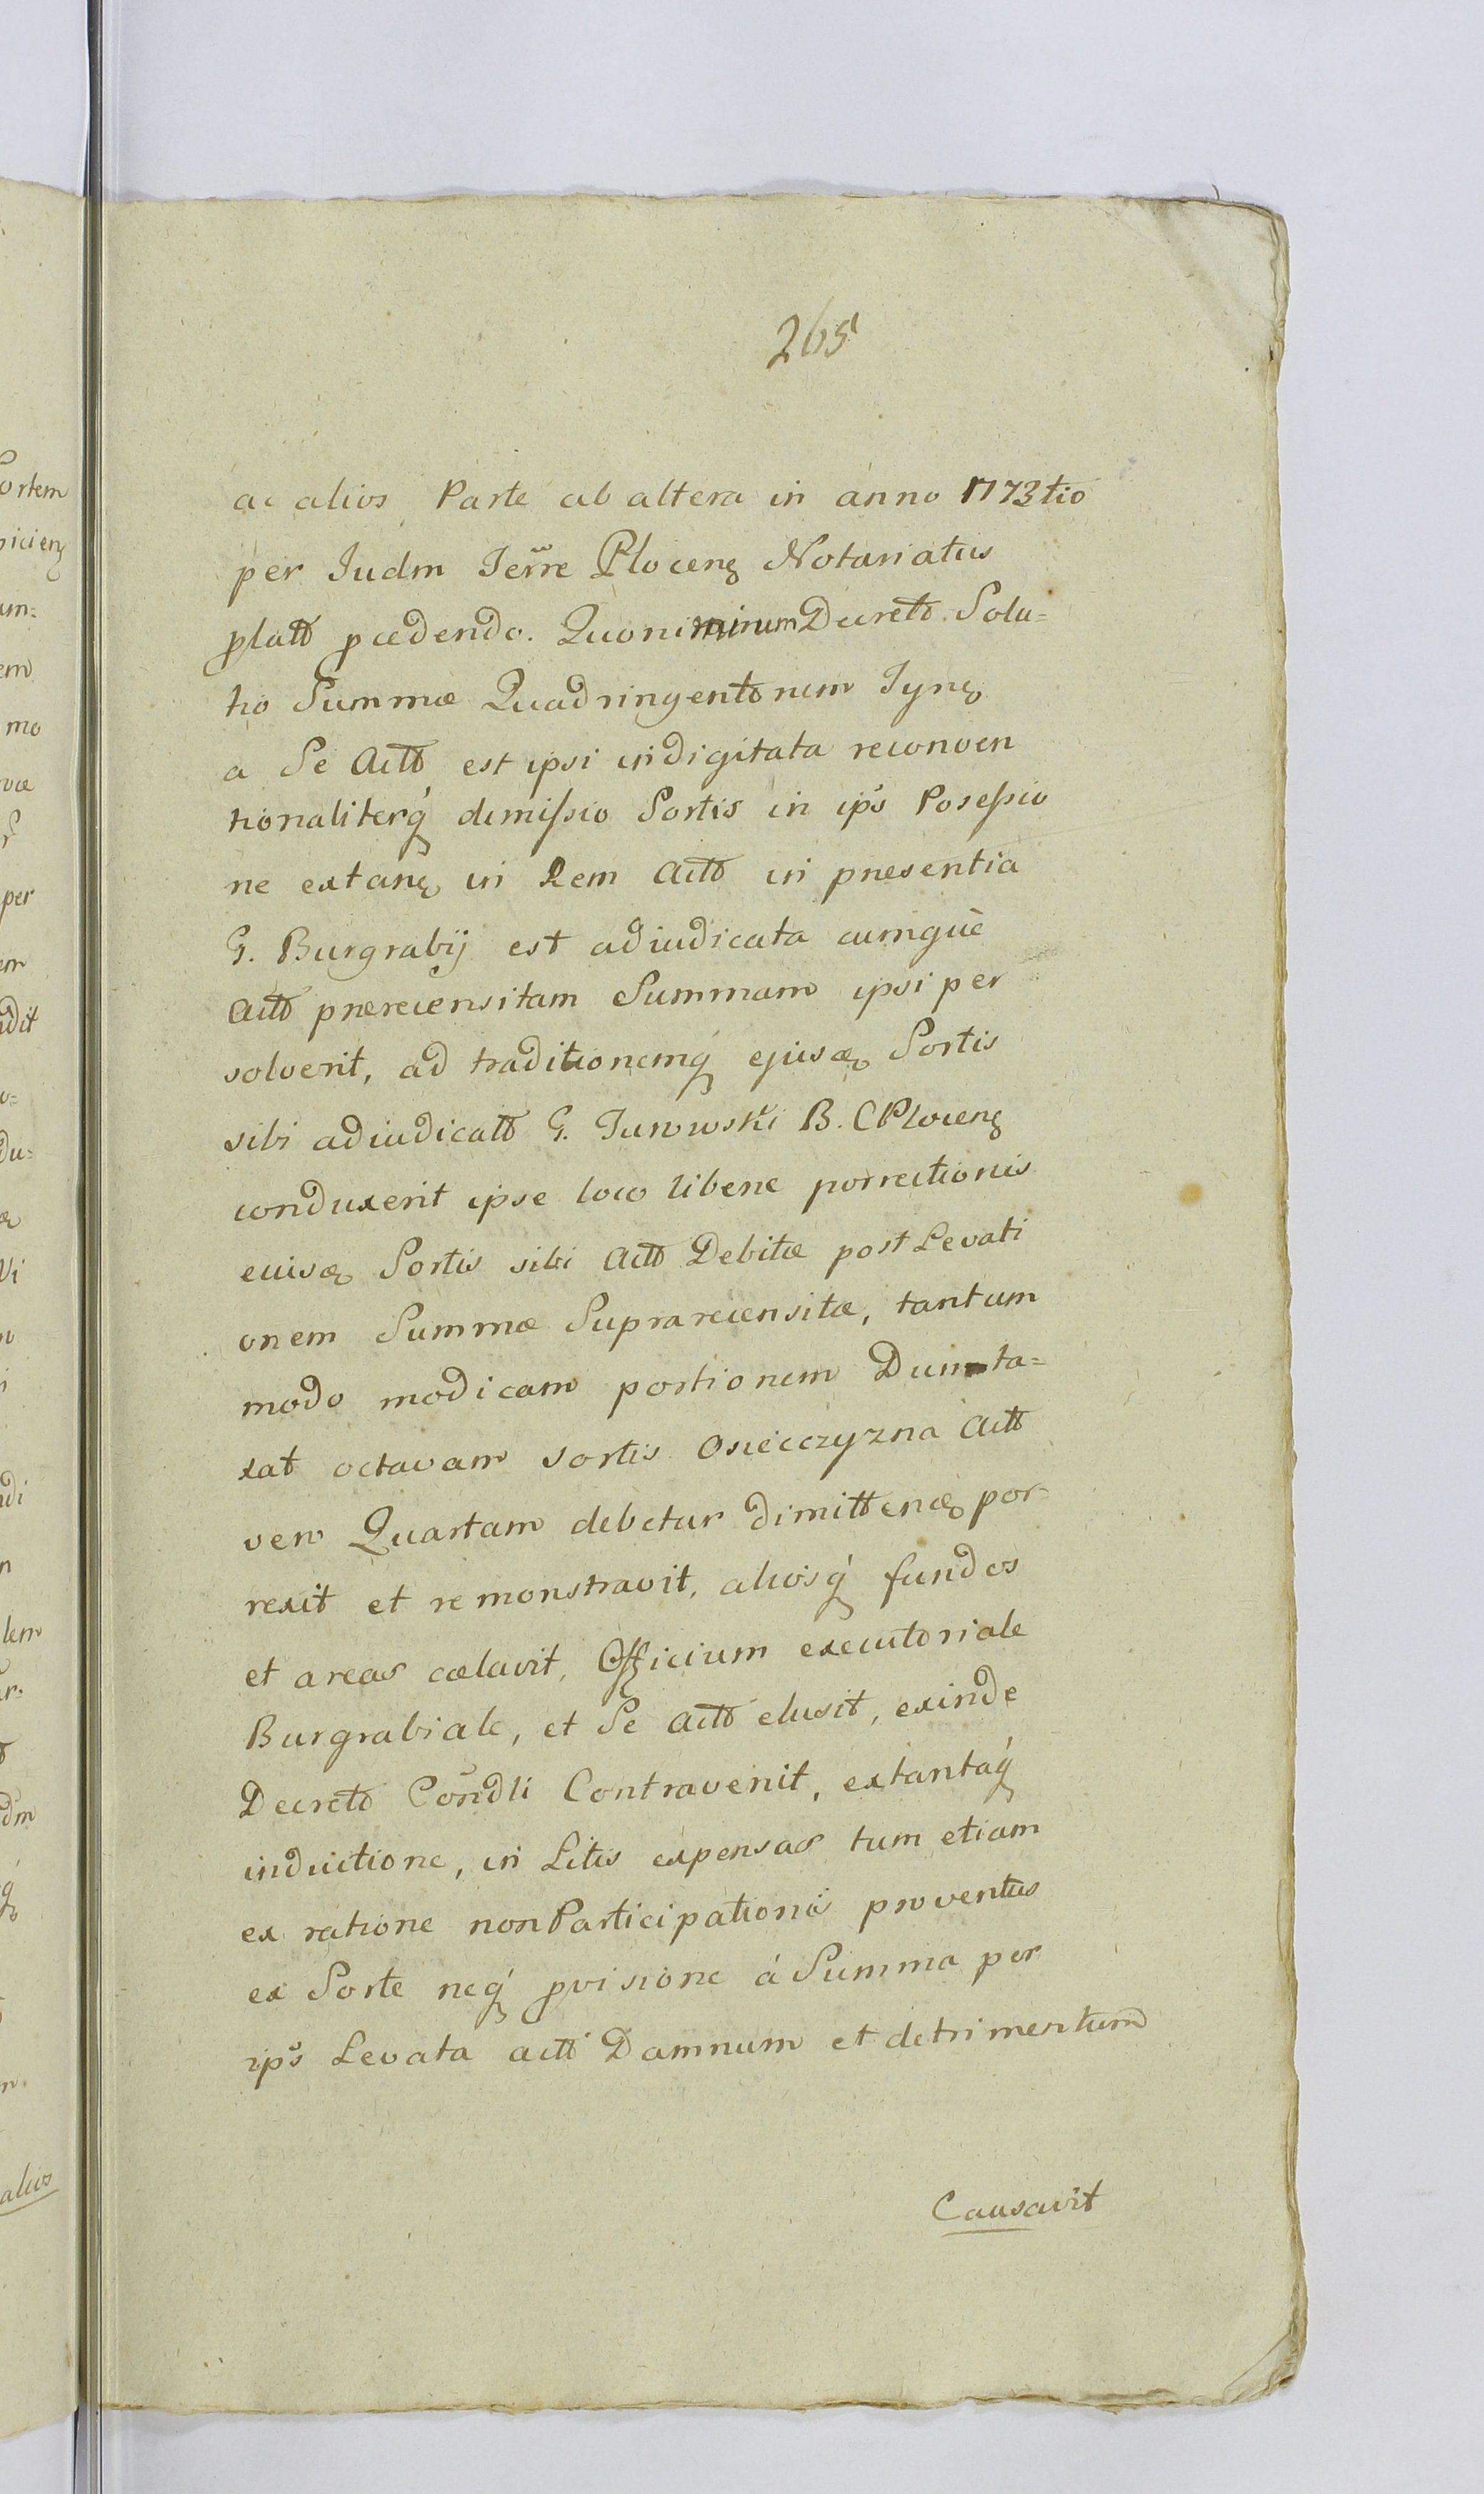 265
ac alios Parte ab altera in anno 1773tio
per Judm Terre Plocenę Notariatus
platt pcedendo. Quoni minum Decreto Solu=
tio Summæ Quadringentorum Tynę
a Se Actt est ipsi indigitata reconven
tionaliterq́ dimissio Sortis in ips Posessio
ne extanę in Rem Actt in presentia
G. Burgrabij est adiudicata cumque
Actt prærecensitam Summam ipsi per
solverit, ad traditionemq́ ejusdę Sortis
sibi adiudicatt G. Junowski B. C Plocenę
conduxerit ipse loco libere porrectionis
eiusdę Sortis sibi Actt Debitæ post Levati
onem Summæ Suprarecensitæ, tantum
modo modicam portionem Dumta=
xat octavam sortis Osiecczyzna Actt
vero Quartam debetur dimittendę por-
rexit et remonstravit, aliosq́ fundos
et areas cœlavit, Officium executoriale
Burgrabiale, et Se Actt elusit, exinde
Decreto Condli Contravenit, extantaq́
inductione, in Litis expensas tum etiam
ex ratione non Participationis proventus
ex Sorte neq́ pvisione á Summa per
ips Levata actt Damnum et detrimentum
Causavit